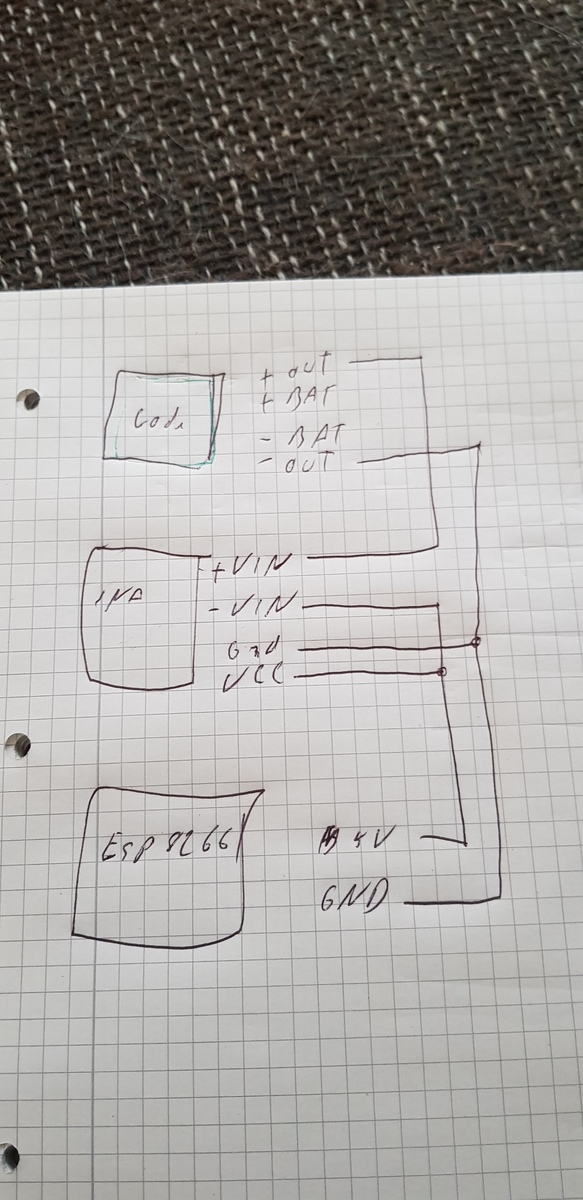 + OUT
+ BAT
- BAT
- OUT
INA
+VIN
- VIN
Gnd
VCC
ESP 8266
5V
GND